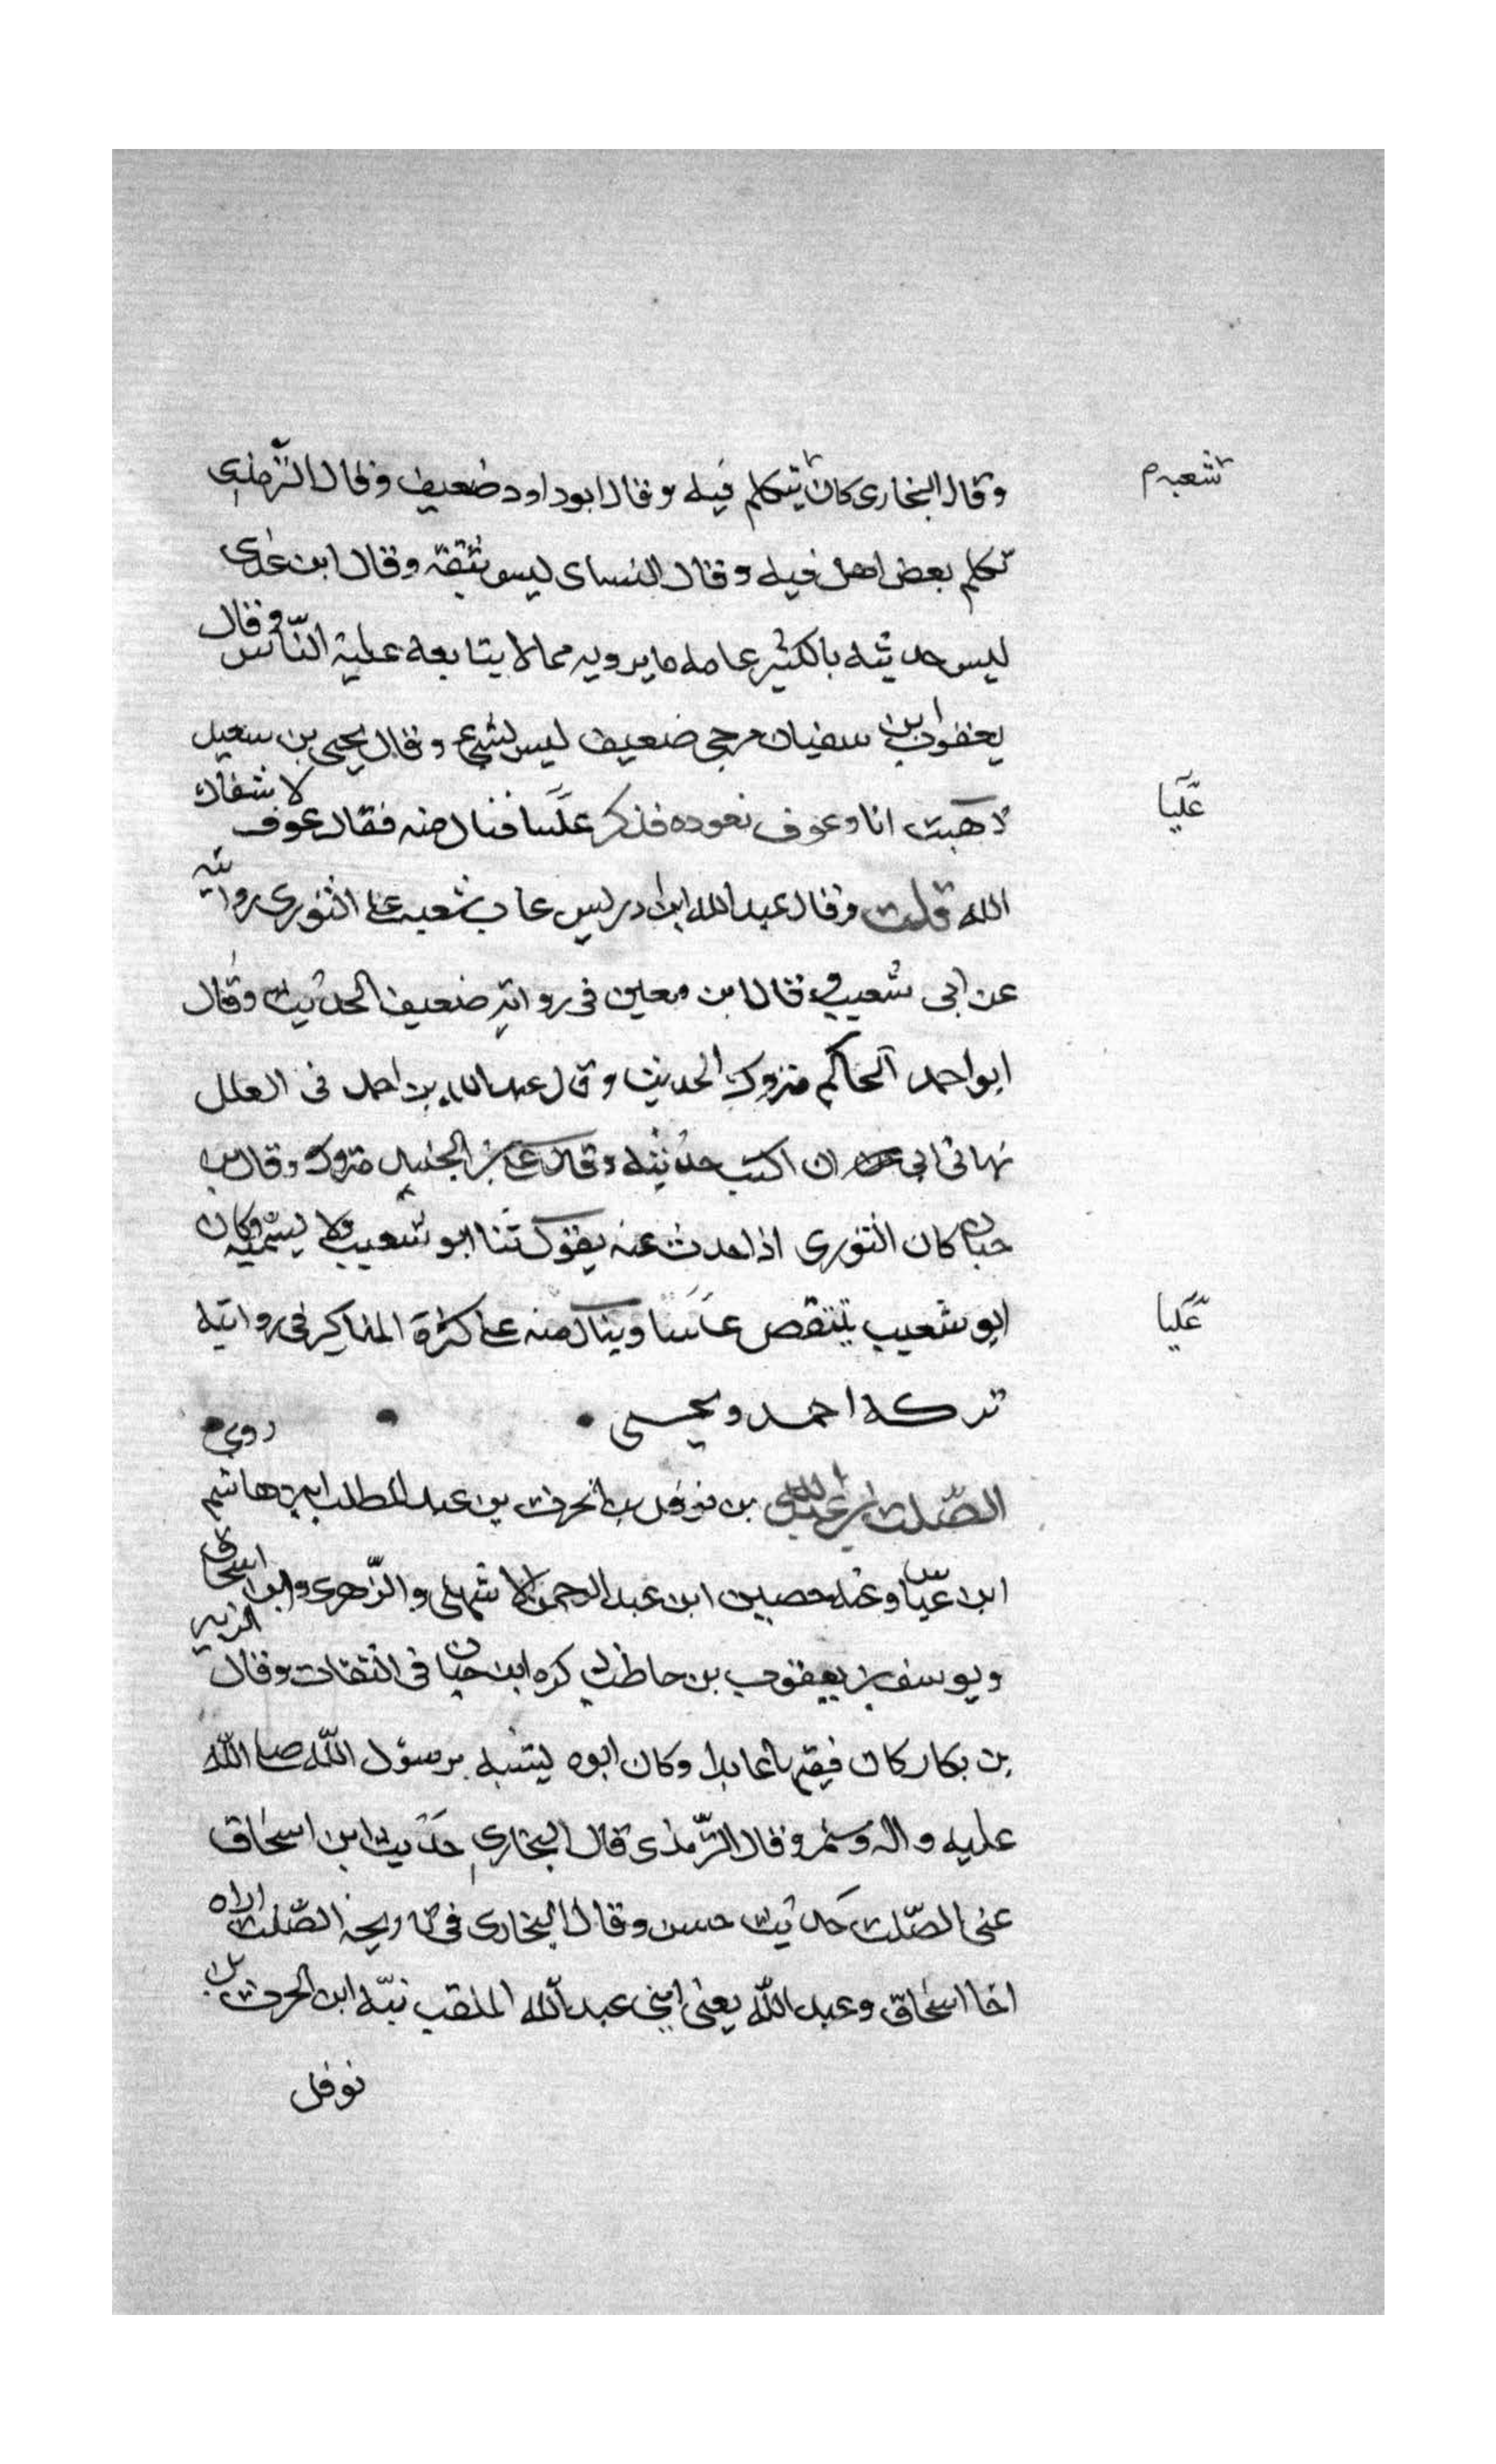 وقال البخارى كان يتكلم فيه وقال ابو داود ضعيف وقال الترمذى
شعبه م
تكلم بعض اهل فيه وقال النساى ليس بثقة وقال ابن عدى
ليس حديثه بالكثير عامه ما يرويه مما لا يتابعه علية النّاس وقال
يعقوب ابن سفيان مرجى ضعيف ليس بشىء وقال يحيى بن سعيد
ذهبت انا وعوف نعوده فذكر عليا فنال منه فقال عوف لا شفاك
عليا
الله قلت وقال عبد الله ابن ادريس عاب شعبه على الثورى روايته
عن ابى شعيب و قال ابن معين فى رواية ضعيف الحديث وقال
ابو احمد الحاكم متروك الحديث وقال عبد الله بن احمد فى العلل
نهانى ابى ان اكتب حديثه وقال على بن الجنيد متروك وقال بن
حبان كان الثورى اذا حدث عنه يقول ثنا ابو شعيب ولا يسميه وكان
ابو شعيب ينتقص عليا وينال منه على كثرة المناكير فى روايته
عليا
تركه احمد ويحيى
روى
الصّلت بن عبد الله بن نوفل بن الحرث بن عبد المطلب ابن هاشم
ابن عبّاس وعنه حصين ابن عبد الرحمن الاشهلى والزّهرى وابن اسحاق
ويوسف بن يعقوب بن حاطب ذكره ابن حبان فى الثقات وقال الزبير
بن بكار كان فقيها عابدا وكان ابوه يشبه برسول اللّه صلى اللّه
عليه واله وسلم وقال الترّمذى قال البخارى حديث ابن اسحاق
عن الصّلت حديث حسن وقال البخارى فى تاريخه الصّلت اراه
اخا اسحاق وعبد اللّه يعنى ابنى عبد الله الملقب ببّه ابن الحرث بن
نوفل